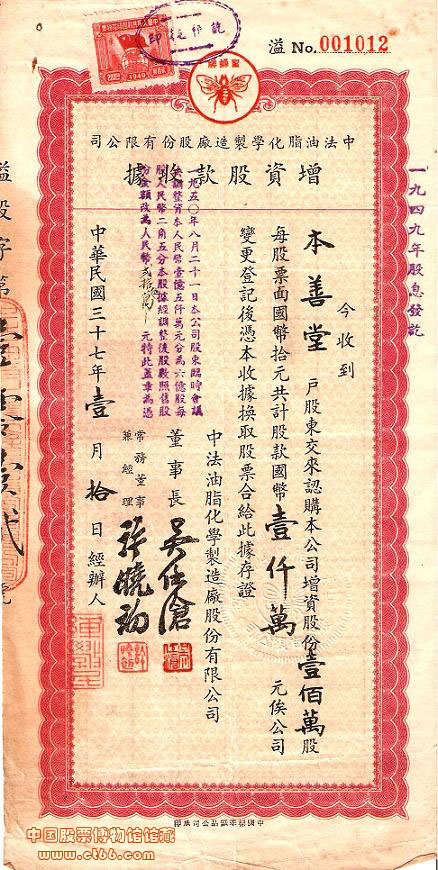 溢 No. 001012
蜜蜂牌
司公限有份股廠造製學化脂油法中
據收款股資增
今收到
本善堂 戶股東交來認購本公司增資股份壹佰萬股
每股票面國幣拾元共計股款國幣壹仟萬元俟公司
變更登記後憑本收據換取股票合給此據存證
中法油脂化學製造廠股份有限公司
董事長
常務董事
兼經理
中華民國三十七年壹月拾日經辦人
一九五〇年八月二十一日本公司股東臨時會議
決調整資本人民幣壹億五仟萬元分為六億股每
股人民幣二角五分本股據經調整後股數照舊股
份金額改為人民幣貳拾五萬元特此蓋章為憑
一九四九年股息發訖
溢股字第壹零壹貳號
1949
中国股票博物馆馆藏
www.ct66.com